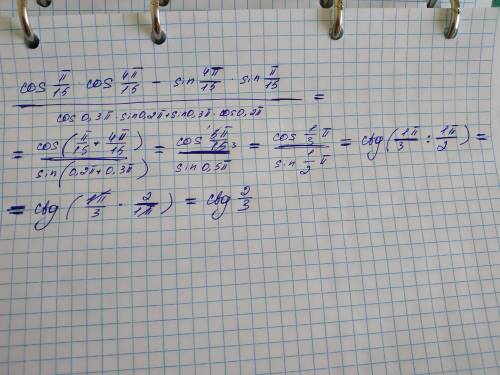 cos π/15 · cos 4π/15 − sin 4π/15 · sin π/15
cos 0,3π · sin 0,2π + sin 0,3π · cos 0,2π =
= cos(π/15 + 4π/15) / sin(0,2π + 0,3π) = cos 5π/15 3 / sin 0,5π = cos 1/3 π / sin 1/2 π = ctg(1π/3 : 1π/2) =
= ctg(1π/3 · 2/1π) = ctg 2/3